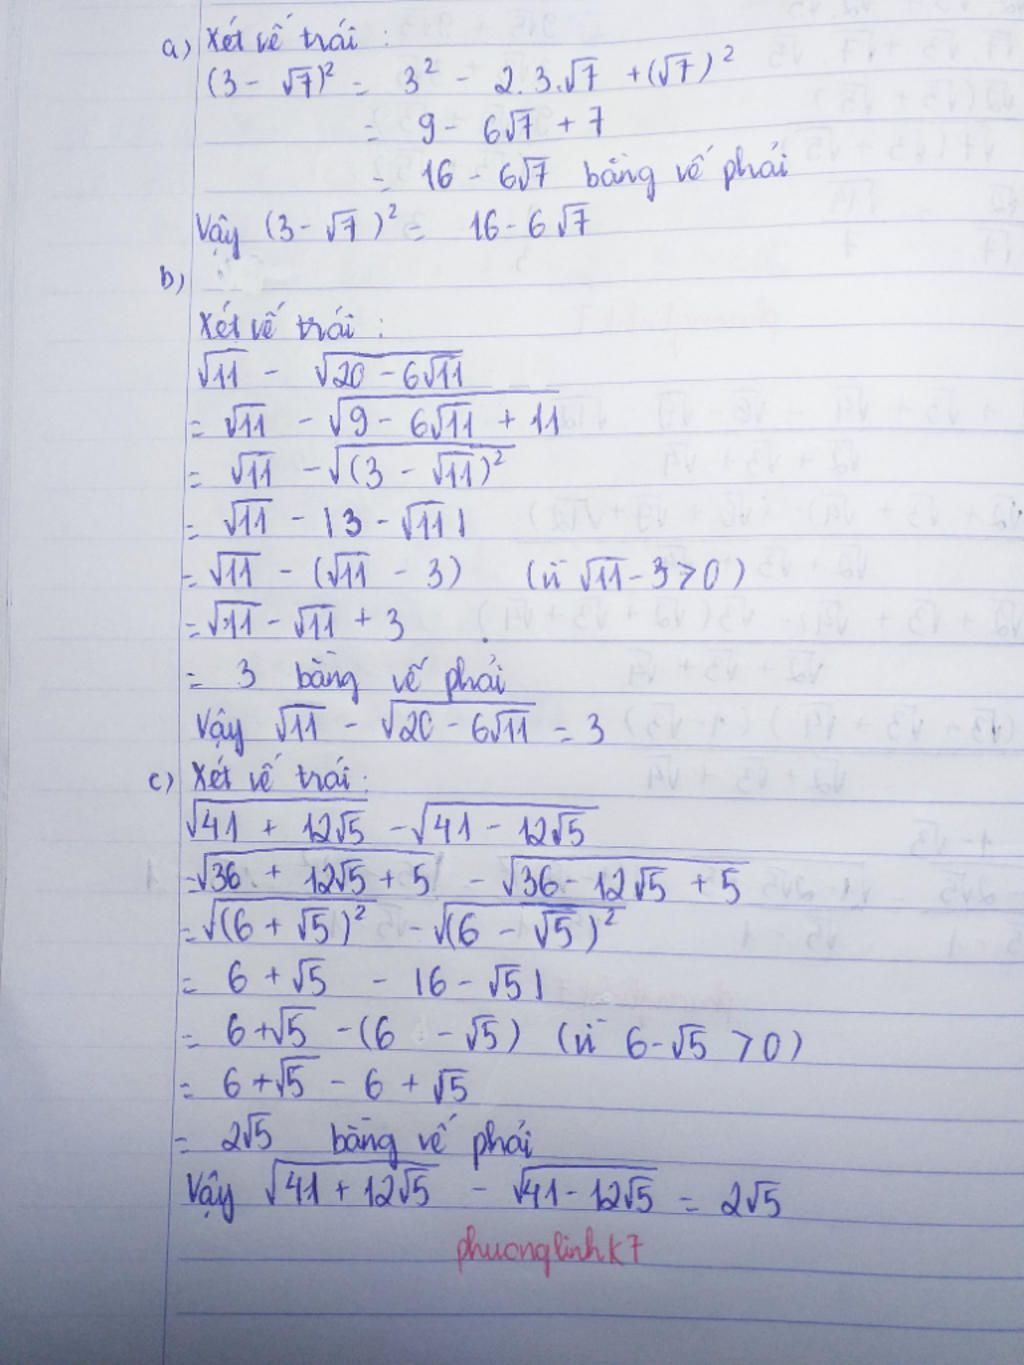 a) Xét vế trái :
(3 - √7)² = 3² - 2.3.√7 + (√7)²
= 9 - 6√7 + 7
= 16 - 6√7 bằng vế phải
Vậy (3 - √7)² = 16 - 6√7
b)
Xét vế trái :
√11 - √(20 - 6√11)
= √11 - √(9 - 6√11 + 11)
= √11 - √((3 - √11)²)
= √11 - |3 - √11|
= √11 - (√11 - 3) (vì √11 - 3 > 0)
= √11 - √11 + 3
= 3 bằng vế phải
Vậy √11 - √(20 - 6√11) = 3
c) Xét vế trái :
√(41 + 12√5) - √(41 - 12√5)
= √(36 + 12√5 + 5) - √(36 - 12√5 + 5)
= √((6 + √5)²) - √((6 - √5)²)
= 6 + √5 - |6 - √5|
= 6 + √5 - (6 - √5) (vì 6 - √5 > 0)
= 6 + √5 - 6 + √5
= 2√5 bằng vế phải
Vậy √(41 + 12√5) - √(41 - 12√5) = 2√5
phuonglinhk7